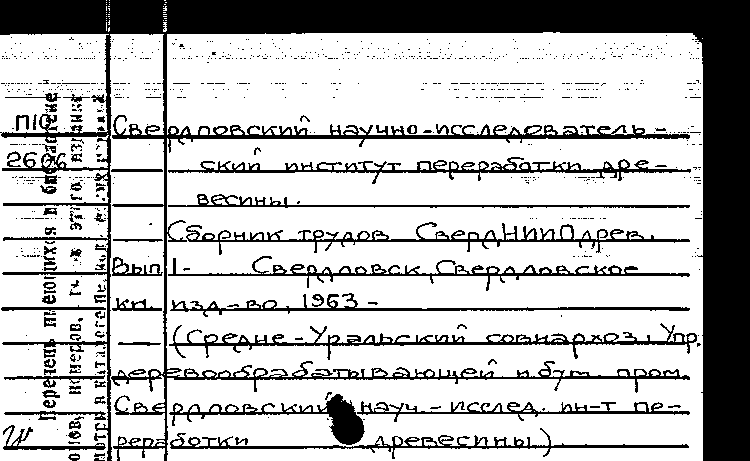 П10 Свердловский научно-исследователь-
2606 ский институт переработки дре-
весины.
Сборник трудов СвердНИИПдрев.
Вып 1- Свердловск, Свердловское
кн. изд-во, 1963-
(Средне-Уральский совнархоз. Упр.
деревообрабатывающей и бум. пром.
Свердловский науч.-исслед. ин-т пе-
реработки древесины)
Перечень имеющихся в библиотеке
номеров, этого издания